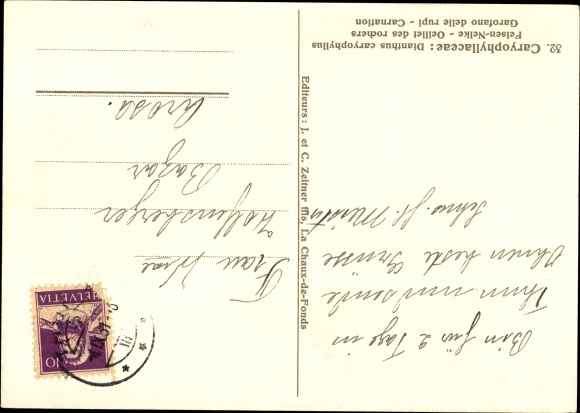 32. Caryophyllaceae: Dianthus caryophyllus
Felsen-Nelke - Oeillet des rochers
Garofano delle rupi - Carnation
Bin für 2 Tage in
Thun und sende
Ihnen beste Grüsse
Schw. H.
Editeurs: J. et C. Zeltner fils, La Chaux-de-Fonds
HELVETIA
10
Frau Wwe
Holfensberger
Bazar
Arosa.